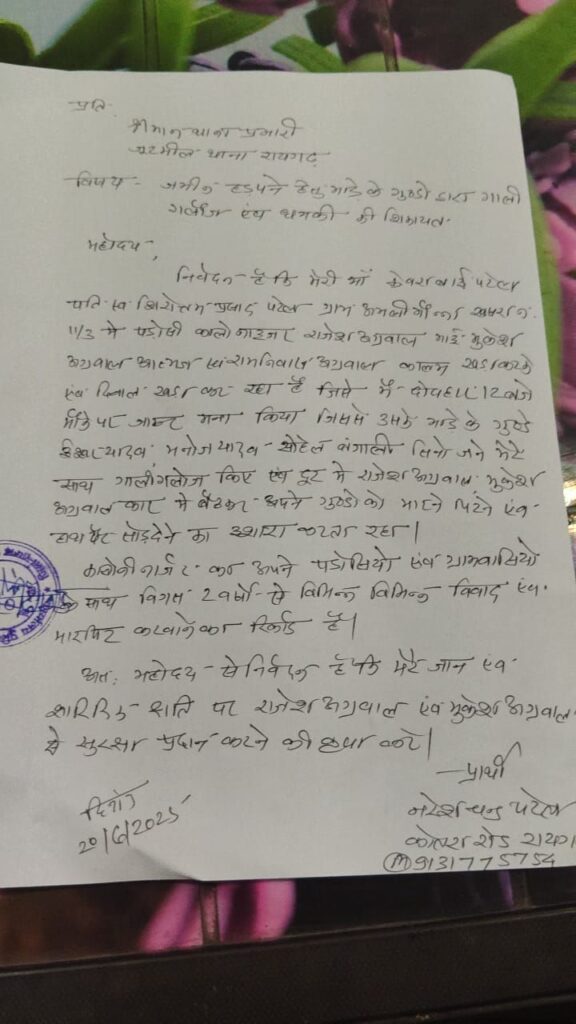 प्रति,
श्रीमान थाना प्रभारी
जूटमील थाना रायगढ़
विषय - जमीन हड़पने हेतु भाड़े के गुण्डो द्वारा गाली
गलौज एंव धमकी की शिकायत.
महोदय,
निवेदन है कि मेरी माँ केवरा बाई पटेल
पति स्व. प्रसाद पटेल ग्राम अमलीभौना खसरा नं.
11/3 मे पडोसी कालोनाइजर राजेश अग्रवाल भाई मुकेश
अग्रवाल आत्मज स्व रामनिवास अग्रवाल कालम खडा करके
एंव दिवाल खडा कर रहा है जिसे मै दोपहर 12 बजे
मौके पर जाकर मना किया जिससे उसके भाडे के गुण्डे
यादव मनोज यादव सोहेल बंगाली तिनो जने मेरे
साथ गालीगलोज किए एंव दूर मे राजेश अग्रवाल मुकेश
अग्रवाल कार मे बैठकर अपने गुण्डो को मारने पिटने एंव
हाथ पैर तोड़ देने का इशारा करता रहा।
कालोनी नाईजर का अपने पडोसियो एंव ग्रामवासियो
के साथ विगत 2 वर्षो से विभिन्न विभिन्न विवाद एंव
मारपिट करवाने का रिकार्ड है।
अतः महोदय से निवेदन है कि मेरे जान एंव
शारिरिक क्षति पर राजेश अग्रवाल एंव मुकेश अग्रवाल
से सुरक्षा प्रदान करने की कृपा करे।
प्रार्थी
दिनांक
20/6/2025
नरेश चन्द्र पटेल
रोड राय
(M) 9131775754